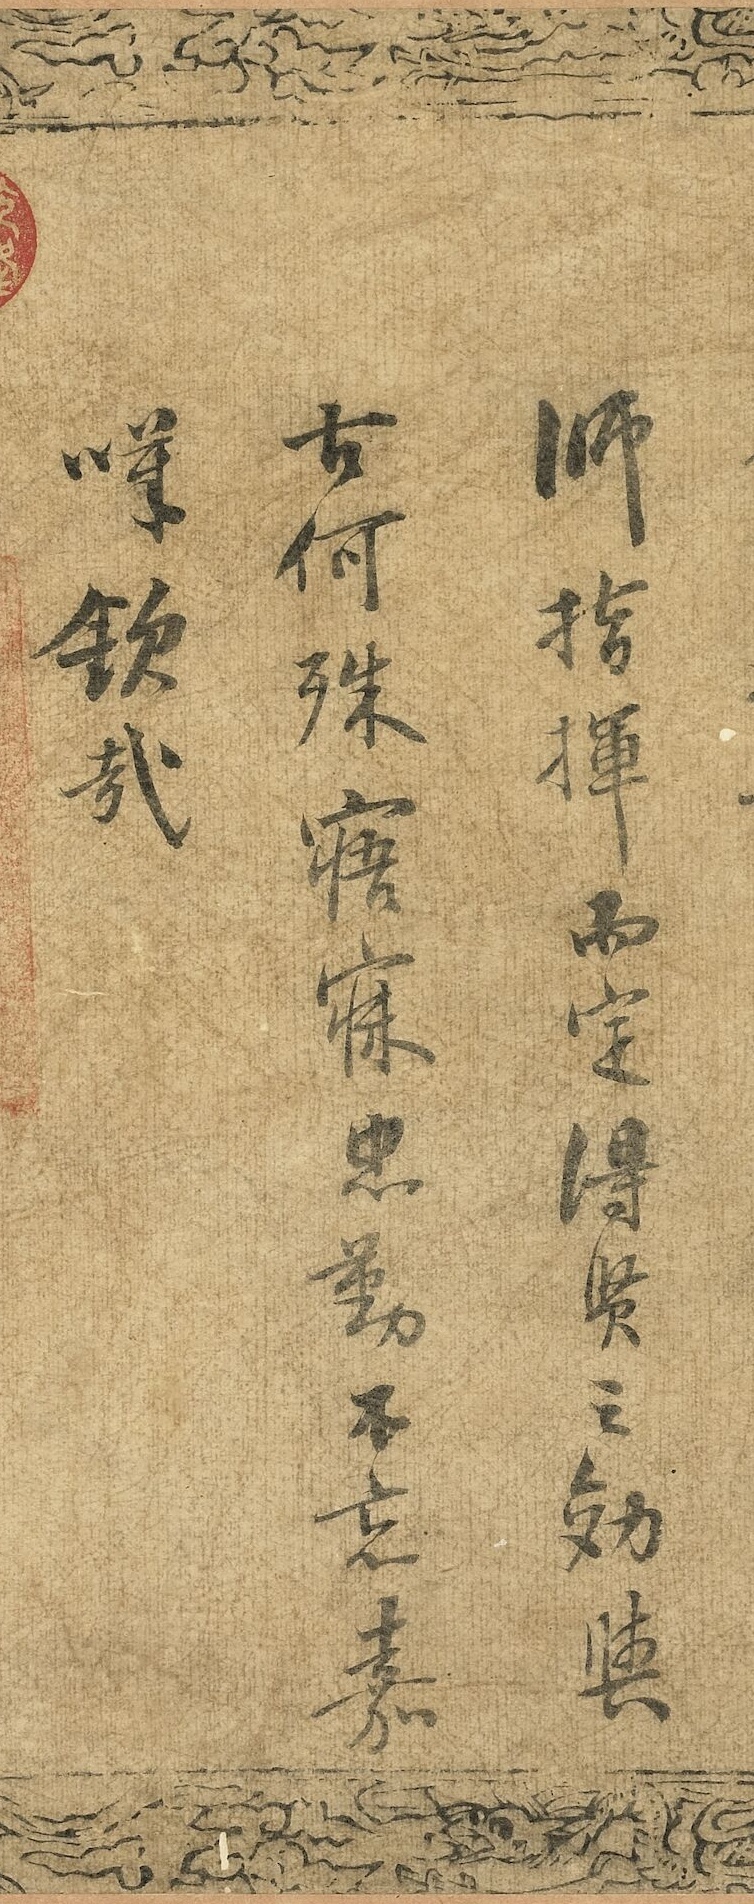 師指揮而定得賢之効與
古何殊寤寐忠勤不忘嘉
嘆欽哉